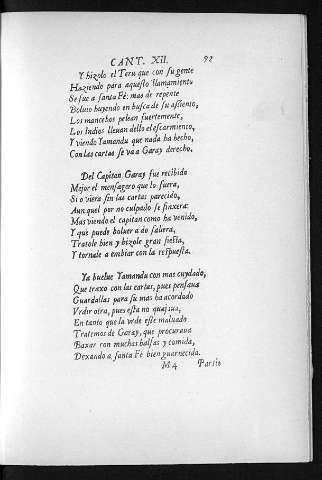 CANT. XII. 92
Y hizolo el Teru que con su gente
Haziendo para aquesto llamamiento
Se fue a santa Fè: mas de repente
Boluio huyendo en busca de su assiento,
Los mancebos pelean fuertemente,
Los Indios lleuan dello el escarmiento,
Y viendo Yamandu que nada ha hecho,
Con las cartas se va a Garay derecho.
Del Capitan Garay fue recibido
Mejor el mensagero que lo fuera,
Si o viera sin las cartas parecido,
Aunque l por no culpado se finxera:
Mas viendo el capitan como ha venido,
Y que puede boluer a do saliera,
Tratole bien y hizole gran fiesta,
Y tornale a embiar con la respuesta.
Ya buelue Yamandu con mas cuydado,
Que traxo con las cartas, pues pensaua
Guardallas para su mas acordado
Vrdir otra, pues esta no quajaua,
En tanto que la vrde este maluado
Tratemos de Garay, que procuraua
Baxar con muchas balsas y comida,
Dexando a santa Fè bien guarnecida.
M 4 Partio